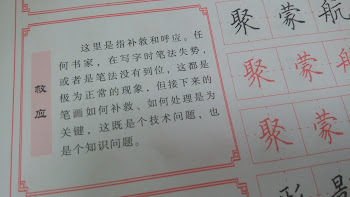 救应
这里是指补救和呼应。任
何书家，在写字时笔法失势，
或者是笔法没有到位，这都是
极为正常的现象，但接下来的
笔画如何补救、如何处理是为
关键，这既是个技术问题，也
是个知识问题。
聚 蒙 航
聚 蒙 航
聚 蒙